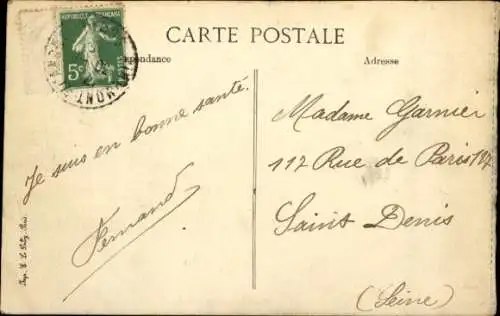 CARTE POSTALE
RÉPUBLIQUE FRANÇAISE
5c
POSTES
Adresse
Je suis en bonne santé.
Fernand
Madame Garnier
117 Rue de Paris 117
Saint Denis
(Seine)